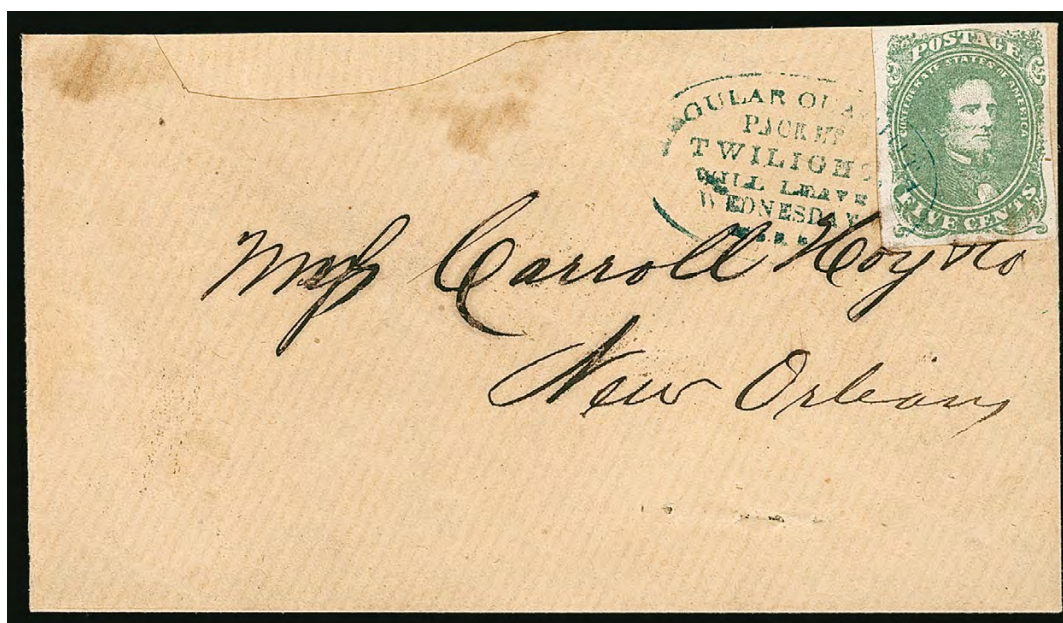 POSTAGE
CONFEDERATE STATES OF AMERICA
FIVE CENTS
GULAR OUA
PACKET
TWILIGHT
WILL LEAVE
WEDNESDAY
Mess Carroll Hoy & Co
New Orleans